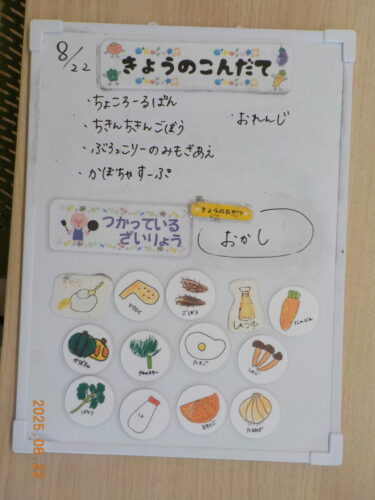 8/22
きょうのこんだて
・ちょころーるぱん
・ちきんちきんごぼう
おれんじ
・ぶろっこりーのみもざあえ
・かぼちゃすーぷ
きょうのおやつ
つかっている
ざいりょう
おかし
とりにく
ごぼう
しょうゆ
にんじん
かぼちゃ
たまご
しめじ
ぱせり
しお
おれんじ
たまねぎ
2025.08.22